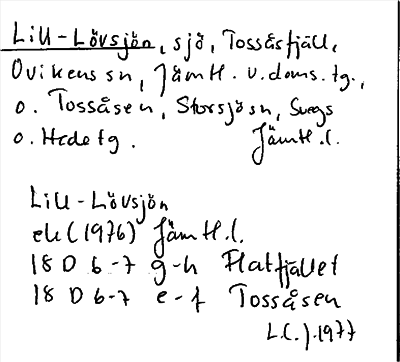 Lill-Lövsjön, sjö, Tossåsfjäll,
Ovikens sn, Jämtl. v. doms. tg.,
o. Tossåsen, Storsjö sn, Svegs
o. Hede tg. Jämtl. l.
Lill-Lövsjön
ek (1976) Jämtl. l.
18 D 6-7 g-h Flatfjället
18 D 6-7 e-f Tossåsen
1977